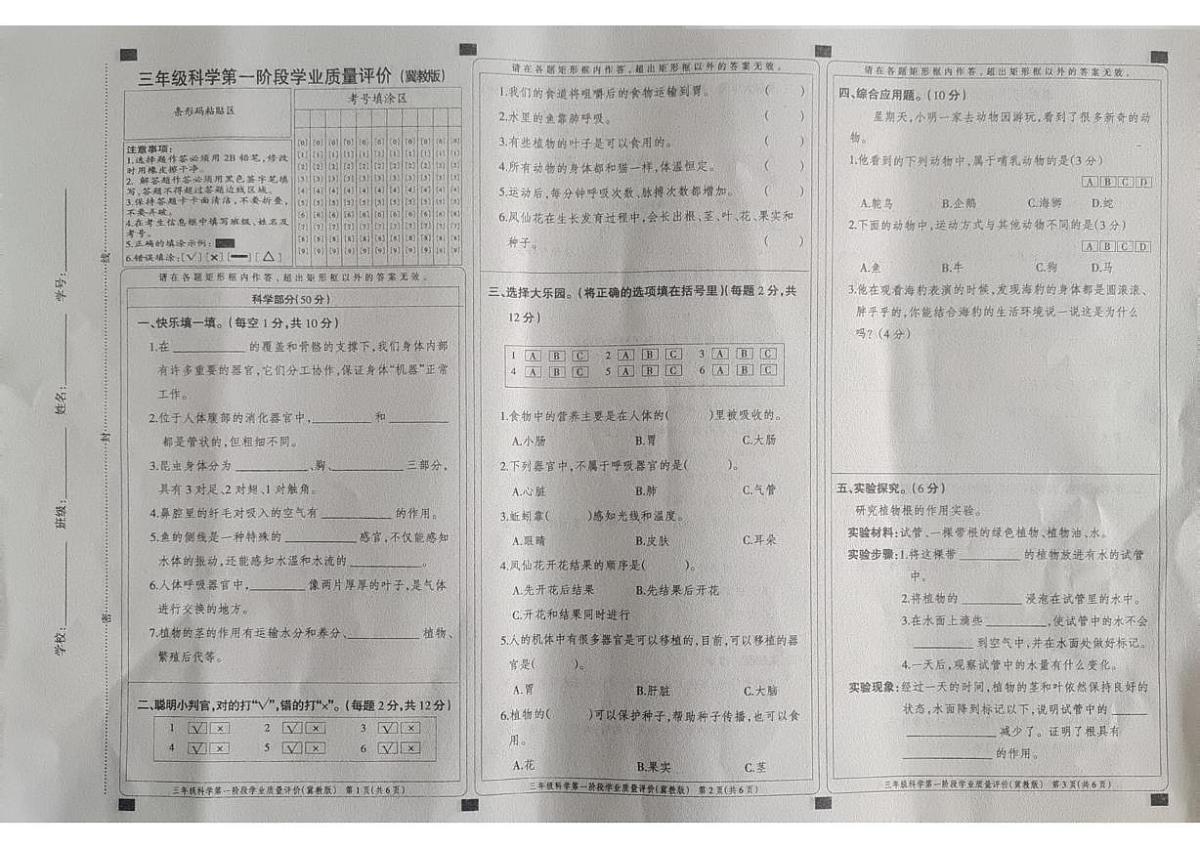 三年级科学第一阶段学业质量评价(冀教版)
条形码粘贴区
考号填涂区
[0] [0] [0] [0] [0] [0] [0] [0] [0] [0] [0]
[1] [1] [1] [1] [1] [1] [1] [1] [1] [1] [1]
[2] [2] [2] [2] [2] [2] [2] [2] [2] [2] [2]
[3] [3] [3] [3] [3] [3] [3] [3] [3] [3] [3]
[4] [4] [4] [4] [4] [4] [4] [4] [4] [4] [4]
[5] [5] [5] [5] [5] [5] [5] [5] [5] [5] [5]
[6] [6] [6] [6] [6] [6] [6] [6] [6] [6] [6]
[7] [7] [7] [7] [7] [7] [7] [7] [7] [7] [7]
[8] [8] [8] [8] [8] [8] [8] [8] [8] [8] [8]
[9] [9] [9] [9] [9] [9] [9] [9] [9] [9] [9]
注意事项:
1.选择题作答必须用2B铅笔,修改
时用橡皮擦干净。
2.解答题作答必须用黑色签字笔填
写,答题不得超过答题边线区域。
3.保持答题卡卡面清洁,不要折叠,
不要弄破。
4.在考生信息框中填写班级、姓名及
考号。
5.正确的填涂示例:
6.错误填涂:[√][×][—][△]
学校:________ 班级:________ 姓名:________ 学号:________
密 封 线
请在各题矩形框内作答,超出矩形框以外的答案无效。
科学部分(50分)
一、快乐填一填。(每空1分,共10分)
1.在________的覆盖和骨骼的支撑下,我们身体内部
有许多重要的器官,它们分工协作,保证身体“机器”正常
工作。
2.位于人体腹部的消化器官中,________和________
都是管状的,但粗细不同。
3.昆虫身体分为________、胸、________三部分,
具有3对足、2对翅、1对触角。
4.鼻腔里的纤毛对吸入的空气有________的作用。
5.鱼的侧线是一种特殊的________感官,不仅能感知
水体的振动,还能感知水温和水流的________。
6.人体呼吸器官中,________像两片厚厚的叶子,是气体
进行交换的地方。
7.植物的茎的作用有运输水分和养分、________植物、
繁殖后代等。
二、聪明小判官,对的打“√”,错的打“×”。(每题2分,共12分)
1 √ × 2 √ × 3 √ ×
4 √ × 5 √ × 6 √ ×
三年级科学第一阶段学业质量评价(冀教版) 第1页(共6页)
请在各题矩形框内作答,超出矩形框以外的答案无效。
1.我们的食道将咀嚼后的食物运输到胃。 ( )
2.水里的鱼靠肺呼吸。 ( )
3.有些植物的叶子是可以食用的。 ( )
4.所有动物的身体都和猫一样,体温恒定。 ( )
5.运动后,每分钟呼吸次数、脉搏次数都增加。 ( )
6.凤仙花在生长发育过程中,会长出根、茎、叶、花、果实和
种子。 ( )
三、选择大乐园。(将正确的选项填在括号里)(每题2分,共
12分)
1 A B C 2 A B C 3 A B C
4 A B C 5 A B C 6 A B C
1.食物中的营养主要是在人体的( )里被吸收的。
A.小肠 B.胃 C.大肠
2.下列器官中,不属于呼吸器官的是( )。
A.心脏 B.肺 C.气管
3.蚯蚓靠( )感知光线和温度。
A.眼睛 B.皮肤 C.耳朵
4.凤仙花开花结果的顺序是( )。
A.先开花后结果 B.先结果后开花
C.开花和结果同时进行
5.人的机体中有很多器官是可以移植的,目前,可以移植的器
官是( )。
A.胃 B.肝脏 C.大脑
6.植物的( )可以保护种子,帮助种子传播,也可以食
用。
A.花 B.果实 C.茎
三年级科学第一阶段学业质量评价(冀教版) 第2页(共6页)
请在各题矩形框内作答,超出矩形框以外的答案无效。
四、综合应用题。(10分)
星期天,小明一家去动物园游玩,看到了很多新奇的动
物。
1.他看到的下列动物中,属于哺乳动物的是(3分)
A B C D
A.鸵鸟 B.企鹅 C.海狮 D.蛇
2.下面的动物中,运动方式与其他动物不同的是(3分)
A B C D
A.鱼 B.牛 C.狗 D.马
3.他在观看海豹表演的时候,发现海豹的身体都是圆滚滚、
胖乎乎的,你能结合海豹的生活环境说一说这是为什么
吗?(4分)
五、实验探究。(6分)
研究植物根的作用实验。
实验材料:试管、一棵带根的绿色植物、植物油、水。
实验步骤:1.将这棵带________的植物放进有水的试管
中。
2.将植物的________浸泡在试管里的水中。
3.在水面上滴些________,使试管中的水不会
________到空气中,并在水面处做好标记。
4.一天后,观察试管中的水量有什么变化。
实验现象:经过一天的时间,植物的茎和叶依然保持良好的
状态,水面降到标记以下,说明试管中的____
________减少了。证明了根具有
________的作用。
三年级科学第一阶段学业质量评价(冀教版) 第3页(共6页)